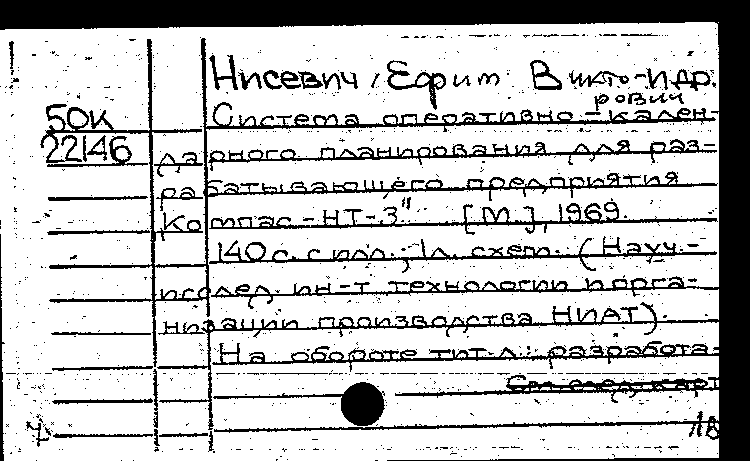 Нисевич, Ефим Викто- и др.
рович
50к
Система оперативно-кален-
22146
дарного планирования для раз-
рабатывающего предприятия
Компас-НТ-3" [М.], 1969.
140 с. с илл.; 1 л. схем. (Науч.-
исслед. ин-т технологии и орга-
низации производства НИАТ).
На обороте тит. л.: разработа-
См. след. карт